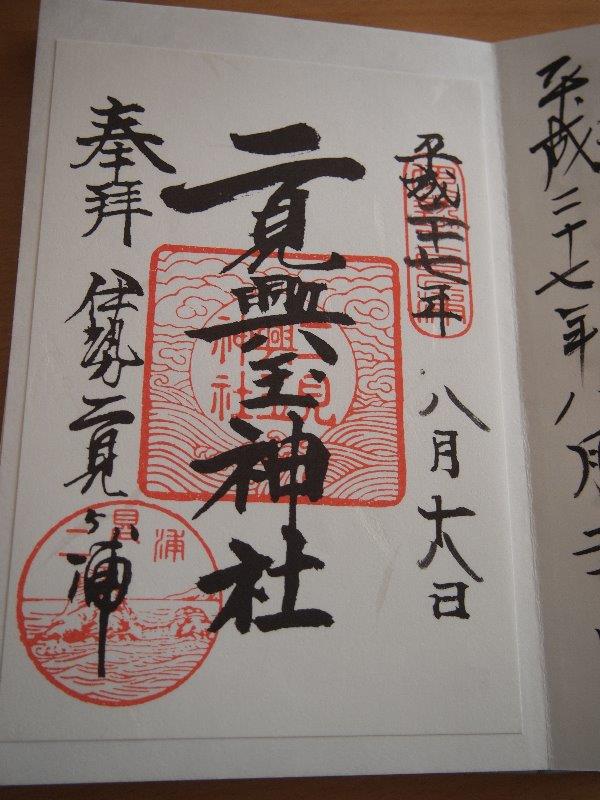 平成二十七年八月二
平成二十七年
八月十八日
二見興玉神社
奉拝
伊勢二見ヶ浦
二見興玉神社
二見浦